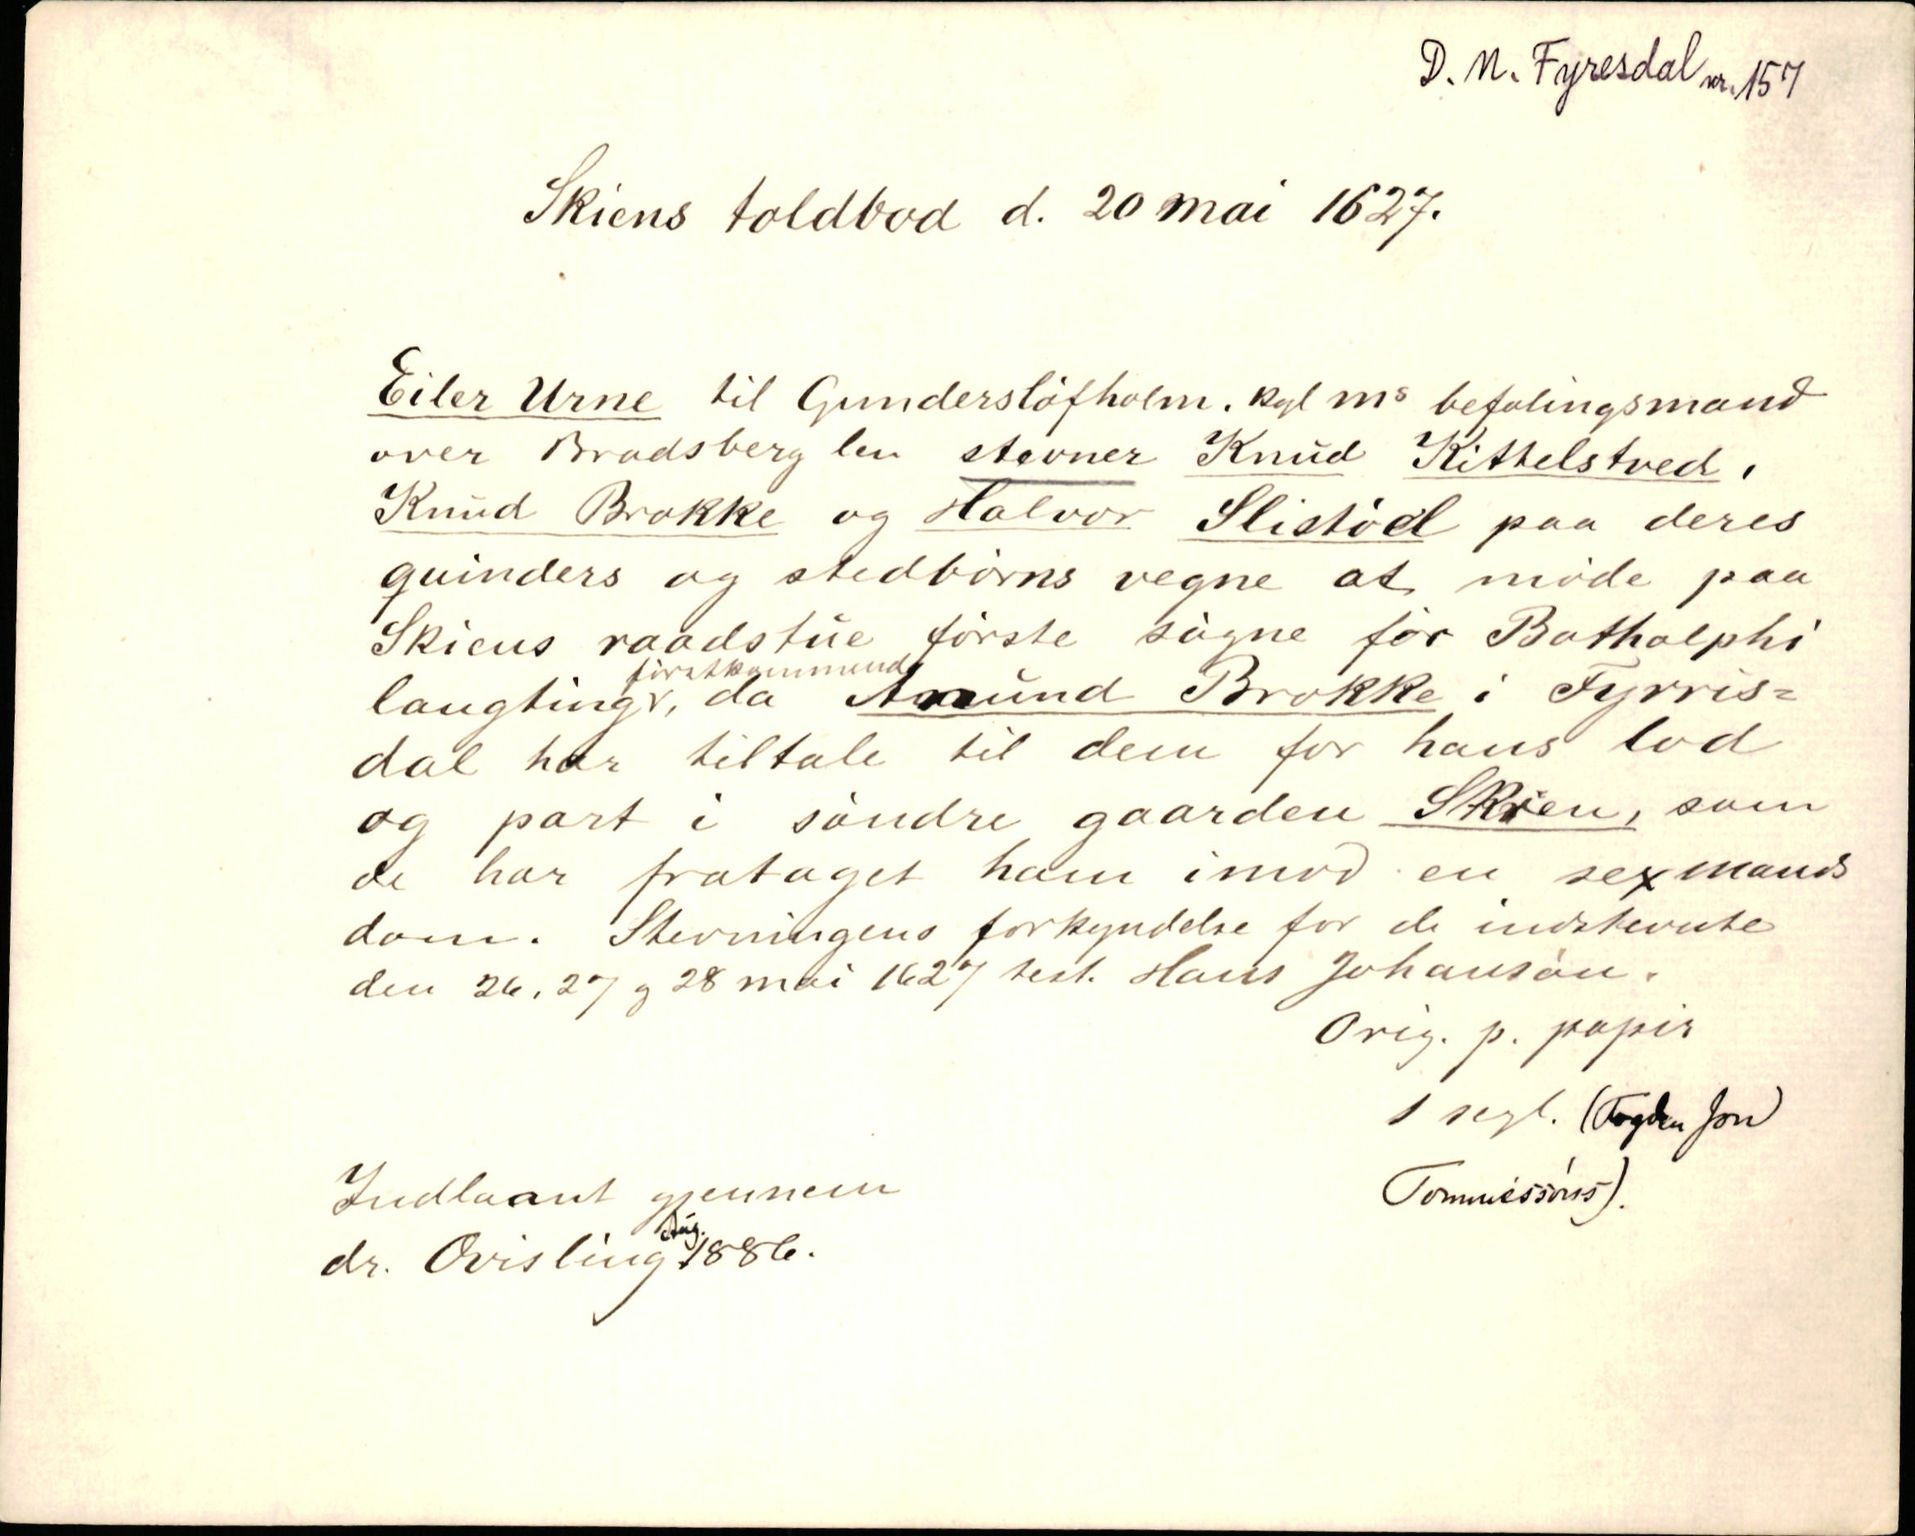 D. N. Fyresdal nr. 157
Skiens toldbod d. 20 mai 1627.
Eiler Urne til Gunderslöfholm. kgl ms befalingsmand
over Bradsberg len stevner Knud Kittelstved,
Knud Brokke og Halvor Slistöd paa deres
quinders og stedbörns vegne at möde paa
Skiens raadstue förste sögne för Botholphi
förstkommende
laugting, da Amund Brokke i Fyrris=
dal har tiltale til dem for hans lod
og part i söndre gaarden Skien, som
de har frataget ham imod en sexmands
dom. Stevningens forkyndelse for de indstevnte
den 26, 27 g 28 mai 1627 test. Hans Johansön.
Orig. p. papir
1 segl. (Fogden Jon
Tommessöns).
Indlaant gjennem
dr. Qvisling Aug. 1886.